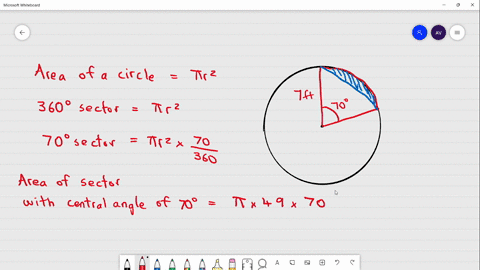 Microsoft Whiteboard
AV
Area of a circle = πr²
360° sector = πr²
70° sector = πr² × 70/360
7ft
70°
Area of sector
with central angle of 70° = π × 49 × 70